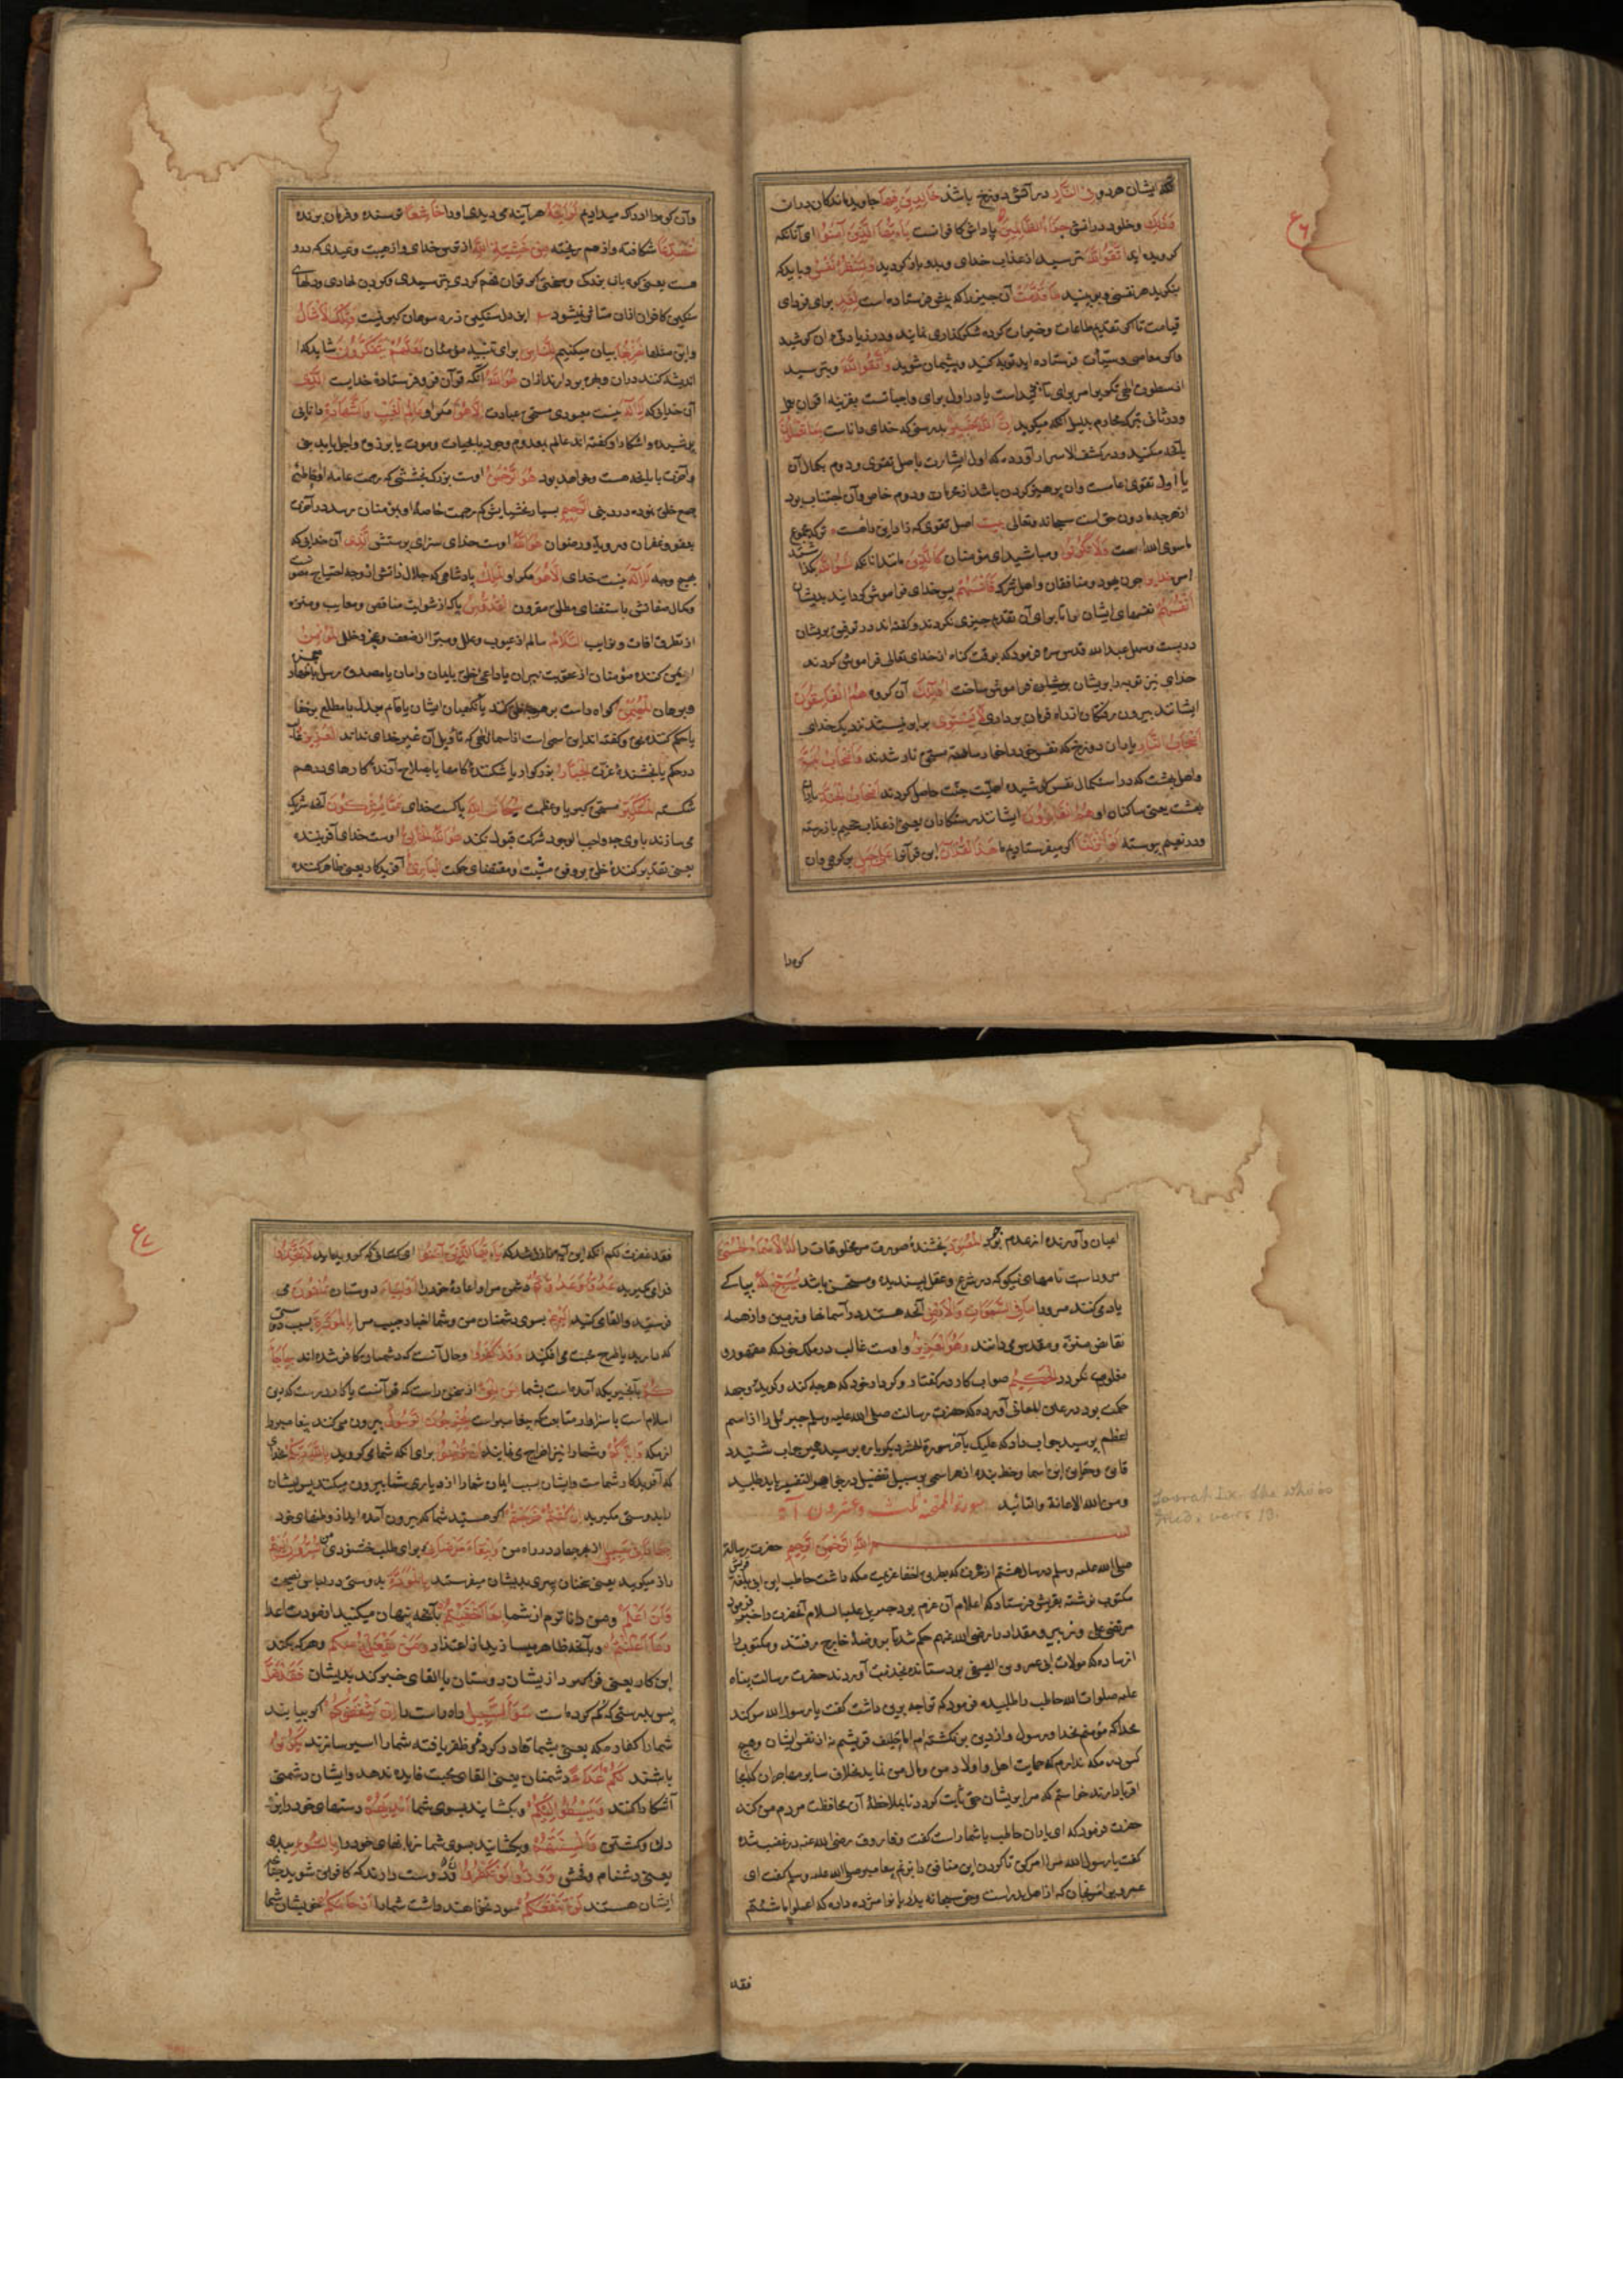 که ایشان هر دو فی النار در آتش دوزخ باشند خالدین فیها جاوید ماندکان دران
وذلك وخلود در آتش جزاء الظالمین پاداش کافرانست یا ایها الذین آمنوا ای آنانکه
کرویده اید اتقوا الله بترسید از عذاب خدای ولتنظر نفس و باید که
بنکرد هر نفسی ما قدمت آن چیز را که پیش فرستاده است لغد برای فردای
قیامت تا اکر تقدیم طاعات وخیرات کرده شکرکذاری نماید ودر زیادتی آن کوشید
واکر معاصی وسیئات فرستاده اید توبه کنید وپشیمان شوید واتقوا الله وبترسید
ان الله خبیر بدرستی که خدای داناست بما تعملون
بآنچه میکنید ودر کشف الاسرار آورده که اول اشارت باصل تقوی ودوم بکمال آن
یا اول تقوی عامست وآن پرهیز کردن باشد از محرمات ودوم خاص وآن اجتناب بود
از هر چه مادون حق است سبحانه وتعالی بیت اصل تقوی که زاد این راهست ترک مجموع
ماسوی الله است ولا تکونوا ومباشید ای مؤمنان کالذین مانند آنانکه نسوا الله
چون یهود ومنافقان واهل شرک فانسیهم پس خدای فراموش کردانید بدیشان
انفسهم نفسهای ایشان را تا برای آن تقدیم چیزی نکردند وکفته اند در توفیق بریشان
در بست وسهل عبد الله قدس سره فرمود که بوقت کناه از خدای تعالی فراموش کردند
خدای نیز توبه را بریشان فراموش ساخت اولئك آن کروه هم الفاسقون
ایشانند بیرون رفتکان از دایره فرمان برداری لا یستوی برابر نیستند نزدیک خدای
اصحاب النار یاران دوزخ که نفس خود را خوار ساخته مستحق نار شدند واصحاب الجنة
واهل بهشت که در استکمال نفس کوشیده اهلیت جنت حاصل کردند اصحاب الجنة یاران
بهشت یعنی ساکنان او هم الفائزون ایشانند رستکاران یعنی از عذاب جحیم باز رسته
ودر نعیم پیوسته لو انزلنا اکر میفرستادیم ما هذا القرآن این قرآن را علی جبل بر کوهی وآن
کوه را
وآن کوه را ادراک میدادیم لرایته هر آینه می دیدی او را خاشعا ترسنده وفرمان برنده
متصدعا شکافته واز هم ریخته من خشیة الله از ترس خدای واز هیبت وعیدی که درو
هست یعنی کوه بآن بزرکی وسختی اکر قرآن فهم کردی بترسیدی
سنکین کافران ازان متاثر نمیشود این دل سنکین ذره سوهان کیر نیست وتلك الامثال
واین مثلها نضربها بیان میکنیم للناس برای تنبیه مؤمنان لعلهم یتفکرون شاید که
اندیشه کنند دران وبهره بردارند ازان هو الله آنکه قرآن فرو فرستادهٔ خدایست الذی
آن خدایی که لا اله نیست معبودی مستحق عبادت الا هو مکر او عالم الغیب والشهادة دانای
پوشیده وآشکارا وکفته اند عالم بمعدوم وموجود یا بحیات وموت یا برزق واجل
وآخرت یا بآنچه هست وخواهد بود هو الرحمن اوست بزرک بخششی که رحمت عامه او
جمیع خلق بوده در دنیی الرحیم بسیار بخشایش که رحمت خاصهٔ او بمؤمنان برسد در آخرت
بعفو وغفران ورویة ورضوان هو الله اوست خدای سزای پرستش الذی آن خدایی که
بهیچ وجه لا اله نیست خدای الا هو مکر او الملك پادشاهی که جلال ذاتش از وجه احتیاج مصون
وکمال صفاتش باستغنای مطلق مقرون القدوس پاک از شوایب مناقص ومعایب ومنزه
از تطرق آفات ونوایب السلام سالم از عیوب وعلل ومبرا از ضعف وعجز وخلل المؤمن
ایمن کننده مؤمنان از عقوبت نیران یا داعی خلق بایمان وامان یا مصدق رسل باظهار
وبرهان المهیمن کواه راست بر هر چه خلق کنند یا نکهبان ایشان یا قایم بعدل یا مطلع بر خفایا
یا حکم کننده بحق وکفته اند این اسمی است از اسما الهی که تاویل آن غیر خدای نداند العزیز
در حکم یا بخشندهٔ عزت الجبار بزرکوار یا شکنندهٔ کامها یا بصلاح آرندهٔ کارهای درهم
شکسته المتکبر مستحق کبریا وعظمت سبحان الله پاکست خدای عما یشرکون از آنچه شریک
می سازند با وی چه واجب الوجود شرکت قبول نکند هو الله الخالق اوست خدای آفریننده
یعنی تقدیر کنندهٔ خلق بر وفق مشیت ومقتضای حکمت الباری آفریدکار یعنی ظاهر کننده
اعیان وآورنده از عدم بوجود المصور بخشندهٔ صورت مر مخلوقات را له الاسماء الحسنی
مر وراست نامهای نیکو که در شرع وعقل پسندیده ومستحسن باشد یسبح له بپاکی
یاد می کنند مر ورا ما فی السموات والارض آنچه هستند در آسمانها وزمین واز همه
نقایص منزه ومقدس میدانند وهو العزیز واوست غالب در ملک خود که مقهور و
مغلوب نکردد الحکیم صواب کار در کفتار وکردار خود که هر چه کند وکوید بوجه
حکمت بود در عین المعانی آورده که حضرت رسالت صلی الله علیه وسلم جبرئیل را از اسم
اعظم پرسید جواب داد که علیک بآخر سورة الحشر دیکر باره پرسید همین جواب شنید
ومن الله الاعانة والتائید سورة الممتحنة ثلث وعشرون آیة
بسم الله الرحمن الرحیم حضرت رسالة
صلی الله علیه وسلم در سال هشتم از هجرت که بطریق اخفا عزیمت مکه داشت حاطب ابن ابی بلتعه
مکتوب نوشته بقریش فرستاد که اعلام آن عزم بود جبریل علیه السلام آنحضرت را خبر
مرتضی علی وزبیر ومقداد را رضی الله عنهم حکم شد تا بروضهٔ خاخ رفتند ومکتوب را
از ساره که مولات ابی عمرو بن الصیفی بود ستانده بخدمت آوردند حضرت رسالت پناه
علیه صلوات الله حاطب را طلبیده فرمود که ترا چه برین داشت کفت یا رسول الله سوکند
بخدا که مؤمنم بخدا ورسول واز دین بر نکشته ام اما حلیف قریشم نه از نفس ایشان وهیچ
کس در مکه ندارم که حمایت اهل واولاد من ومال من نماید بخلاف سایر مهاجران که آنجا
اقربا دارند خواستم که مرا بر ایشان حقی ثابت کردد تا بملاحظهٔ آن محافظت مردم من کنند
حضرت فرمود که ای یاران حاطب با شما راست کفت وفاروق رضی الله عنه در غضب شده
کفت یا رسول الله مرا امر کن تا کردن این منافق را بزنم پیغامبر صلی الله علیه وسلم کفت ای
فقد
فقد غفرت لکم آنکه این آیه نازل شد که یا ایها الذین آمنوا ای کسانی که کرویده اید لا تتخذوا
فرا مکیرید عدوی وعدوکم دشمن مرا واعادهٔ خود را اولیاء دوستان تلقون می
فرستید والقا می کنید الیهم بسوی دشمنان من وشما اخبار حبیب مرا بالمودة بسبب دوستی
که دارید یا طرح محبت می افکنید وقد کفروا وحال آنست که دشمنان کافر شده اند بما جاءکم
بآن چیزیکه آمده است بشما من الحق از سخن راست که قرآنست یا کار درست که دین
اسلام است یا سزاوار متابعت که پیغامبر است یخرجون الرسول بیرون می کنند پیغامبر را
از مکه وایاکم وشما را نیز اخراج می نمایند ان تؤمنوا برای آنکه شما می کروید بالله ربکم بخدای
که آفریدکار شماست وایشان بسبب ایمان شما را از دیار شما بیرون میکنند پس ایشان
را بدوستی مکیرید ان کنتم خرجتم اکر هستید شما که بیرون آمده اید از وطنهای خود
جهادا فی سبیلی از بهر جهاد در راه من وابتغاء مرضاتی وبرای طلب خشنودی من تسرون الیهم
راز میکوئید یعنی سخنان سری بدیشان میفرستید بالمودة بدوستی در لباس نصیحت
وانا اعلم ومن داناترم از شما بما اخفیتم بآنچه پنهان میکنید از مودت اعدا
وما اعلنتم وبآنچه ظاهر میسازید از اعتذار ومن یفعله منکم وهر که بکند
این کار یعنی فرا کیرد از ایشان دوستان یا القای خبر کند بدیشان فقد ضل
پس بدرستی که کم کرده است سواء السبیل راه راست را ان یثقفوکم اکر بیابند
شما را کفار مکه یعنی بشما قادر کردند وظفر یافته شما را اسیر سازند یکونوا
باشند لکم اعداء دشمنان یعنی القای محبت فایده ندهد وایشان دشمنی
آشکارا کنند ویبسطوا الیکم وبکشایند بسوی شما ایدیهم دستهای خود را بزدن
وکشتن والسنتهم وبکشایند بسوی شما زبانهای خود را بالسوء ببدی
یعنی دشنام وفحش وودوا لو تکفرون ودوست دارند که کافر شوید چنانچه
ایشان هستند لن تنفعکم سود نخواهند داشت شما را ارحامکم خویشان شما